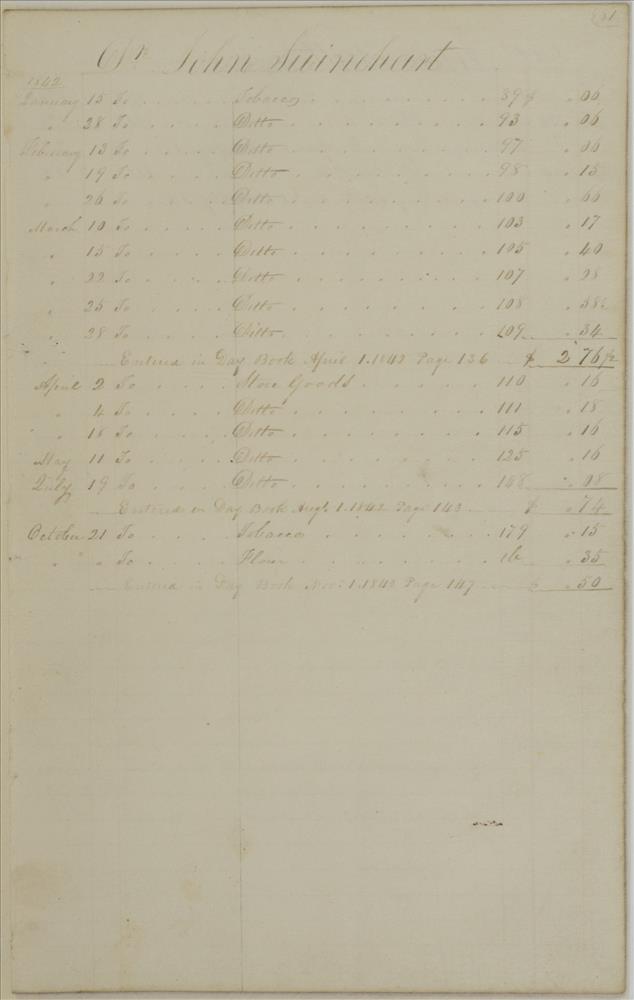 Dr. John Swinehart
1842
January 15 To . . . . . Tobacco . . . . . . . . . 89 $ . 06
" 28 To . . . . . Ditto . . . . . . . . . 93 . 06
February 13 To . . . . . Ditto . . . . . . . . . 97 . 06
" 19 To . . . . . Ditto . . . . . . . . . 98 . 15
" 26 To . . . . . Ditto . . . . . . . . . 100 . 66
March 10 To . . . . . Ditto . . . . . . . . . 103 . 17
" 15 To . . . . . Ditto . . . . . . . . . 105 . 40
" 22 To . . . . . Ditto . . . . . . . . . 107 . 28
" 25 To . . . . . Ditto . . . . . . . . . 108 . 58½
" 28 To . . . . . Ditto . . . . . . . . . 109 . 34
Entered in Day Book April 1. 1842 Page 136 $ 2 76½
April 2 To . . . . . Store Goods . . . . . . 110 . 16
" 4 To . . . . . Ditto . . . . . . . . . 111 . 18
" 18 To . . . . . Ditto . . . . . . . . . 115 . 16
May 11 To . . . . . Ditto . . . . . . . . . 125 . 16
July 19 To . . . . . Ditto . . . . . . . . . 148 . 08
Entered in Day Book Augt. 1. 1842 Page 143 $ . 74
October 21 To . . . . . Tobacco . . . . . . . . 179 . 15
" " To . . . . . Flour . . . . . . . . . . 35
Entered in Day Book Nov. 1. 1842 Page 147 $ . 50